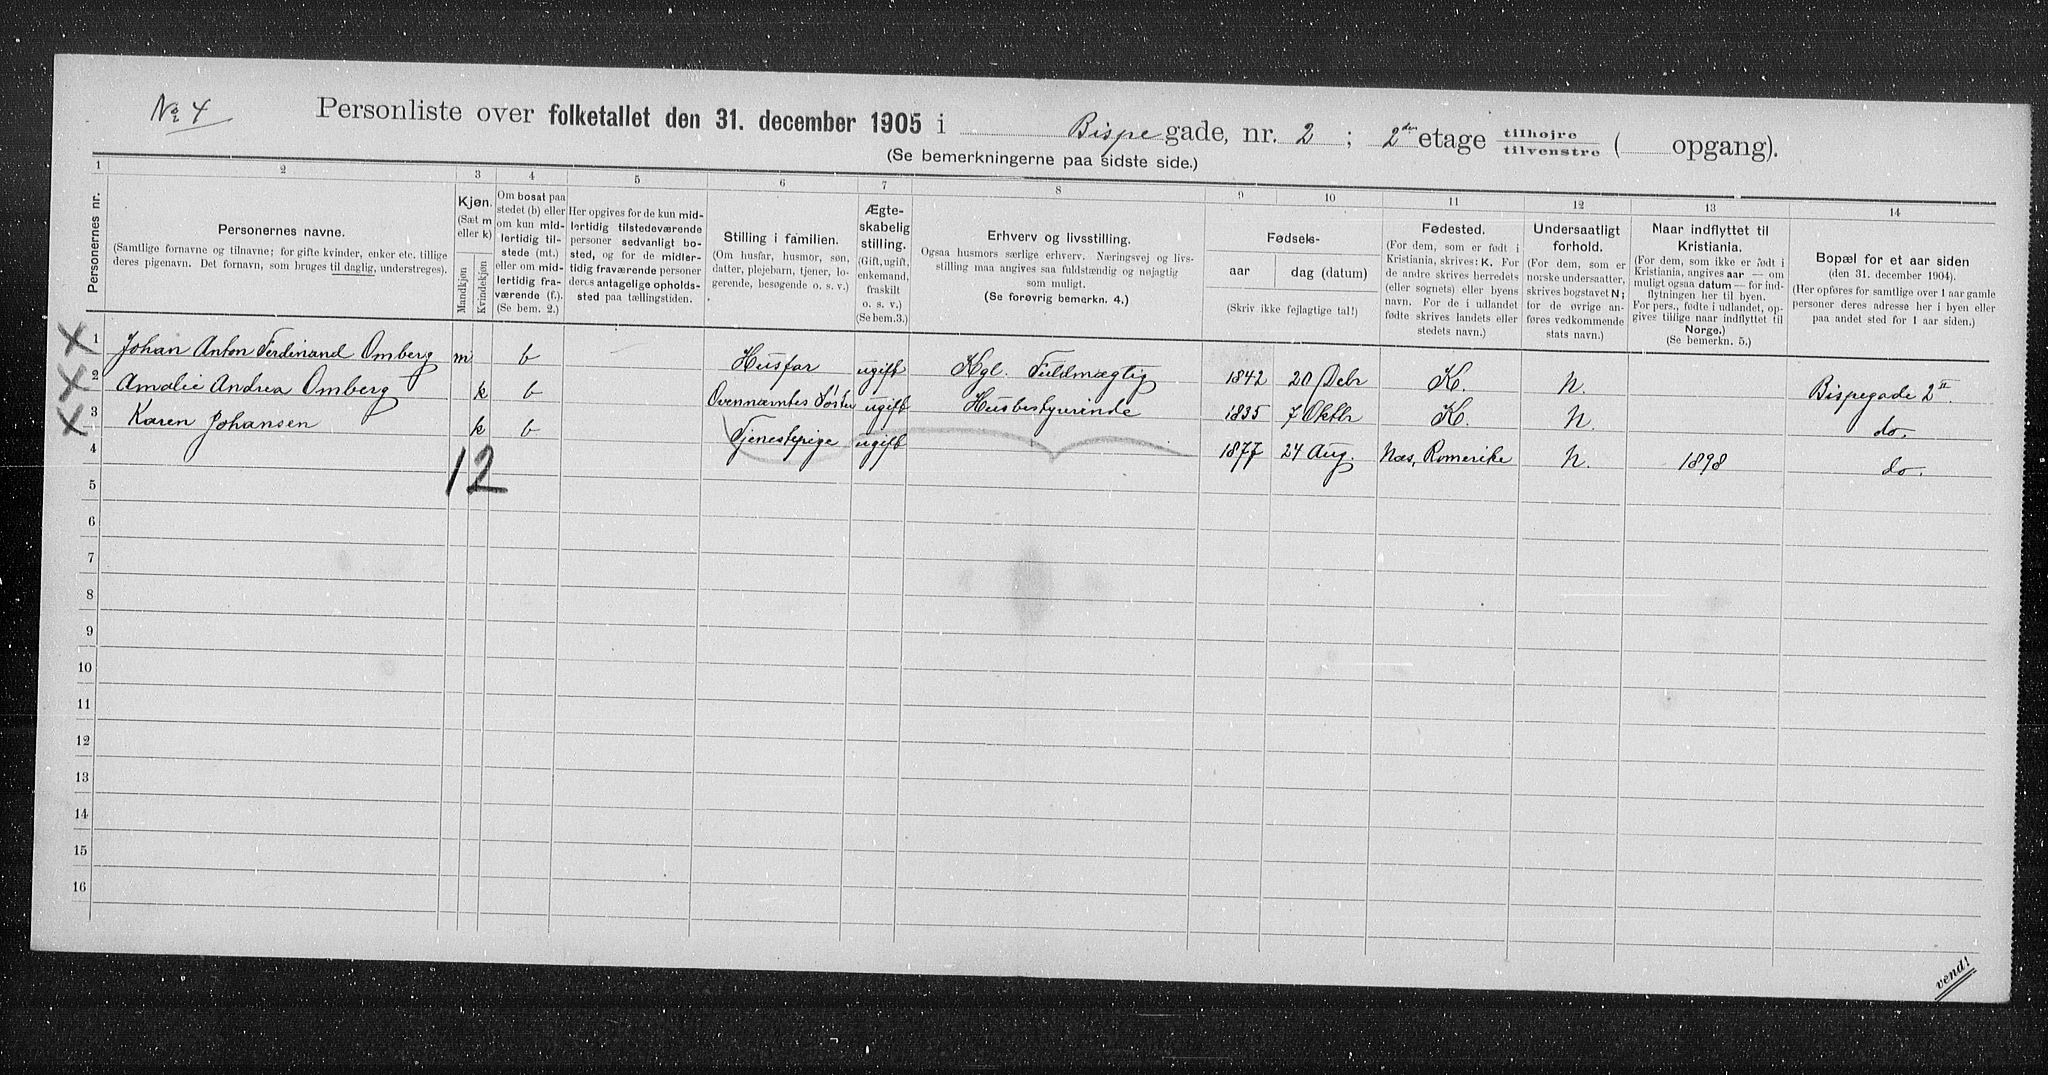 No 4 Personliste over folketallet den 31. december 1905 i Bispegade, nr. 2; 2den etage tilhøjre / tilvenstre ( opgang).
(Se bemerkningerne paa sidste side.)
1 2 3 4 5 6 7 8 9 10 11 12 13 14
Personernes nr.
Personernes navne.
(Samtlige fornavne og tilnavne; for gifte kvinder, enker etc. tillige
deres pigenavn. Det fornavn, som bruges til daglig, understreges).
Kjøn.
(Sæt m
eller k)
Mandkjøn
Kvindekjøn
Om bosat paa
stedet (b) eller
om kun mid-
lertidig til-
stede (mt.)
eller om mid-
lertidig fra-
værende (f.).
(Se bem. 2.)
Her opgives for de kun mid-
lertidig tilstedeværende
personer sedvanligt bo-
sted, og for de midler-
tidig fraværende personer
deres antagelige opholds-
sted paa tællingstiden.
Stilling i familien.
(Om husfar, husmor, søn,
datter, plejebarn, tjener, lo-
gerende, besøgende o. s. v.)
Ægte-
skabelig
stilling.
(Gift, ugift,
enkemand,
fraskilt
o. s. v.)
(Se bem. 3.)
Erhverv og livsstilling.
Ogsaa husmors særlige erhverv. Næringsvej og livs-
stilling maa angives saa fuldstændig og nøjagtig
som muligt.
(Se forøvrig bemerkn. 4.)
Fødsels-
aar dag (datum)
(Skriv ikke fejlagtige tal!)
Fødested.
(For dem, som er født i
Kristiania, skrives: K. For
de andre skrives herredets
(eller sognets) eller byens
navn. For de i udlandet
fødte skrives landets eller
stedets navn.)
Undersaatligt
forhold.
(For dem, som er
norske undersaatter,
skrives bogstavet N;
for de øvrige an-
føres vedkommende
stats navn.)
Naar indflyttet til
Kristiania.
(For dem, som ikke er født i
Kristiania, angives aar — om
muligt ogsaa datum — for ind-
flytningen her til byen.
For pers., fødte i udlandet, op-
gives tillige naar indflyttet til
Norge.)
(Se bemerkn. 5.)
Bopæl for et aar siden
(den 31. december 1904).
(Her opføres for samtlige over 1 aar gamle
personer deres adresse her i byen eller
paa andet sted for 1 aar siden.)
X 1 Johan Anton Ferdinand Omberg m b Husfar ugift Kgl. Fuldmægtig 1842 20 Debr K. N. Bispegade 2 II
X 2 Amalie Andrea Omberg k b Ovennævntes Søster ugift Husbestyrerinde 1835 7 Oktbr K. N. do.
X 3 Karen Johansen k b Tjenestepige ugift 1877 24 Aug. Næs, Romerike N. 1898 do.
4
12
5
6
7
8
9
10
11
12
13
14
15
16
vend!